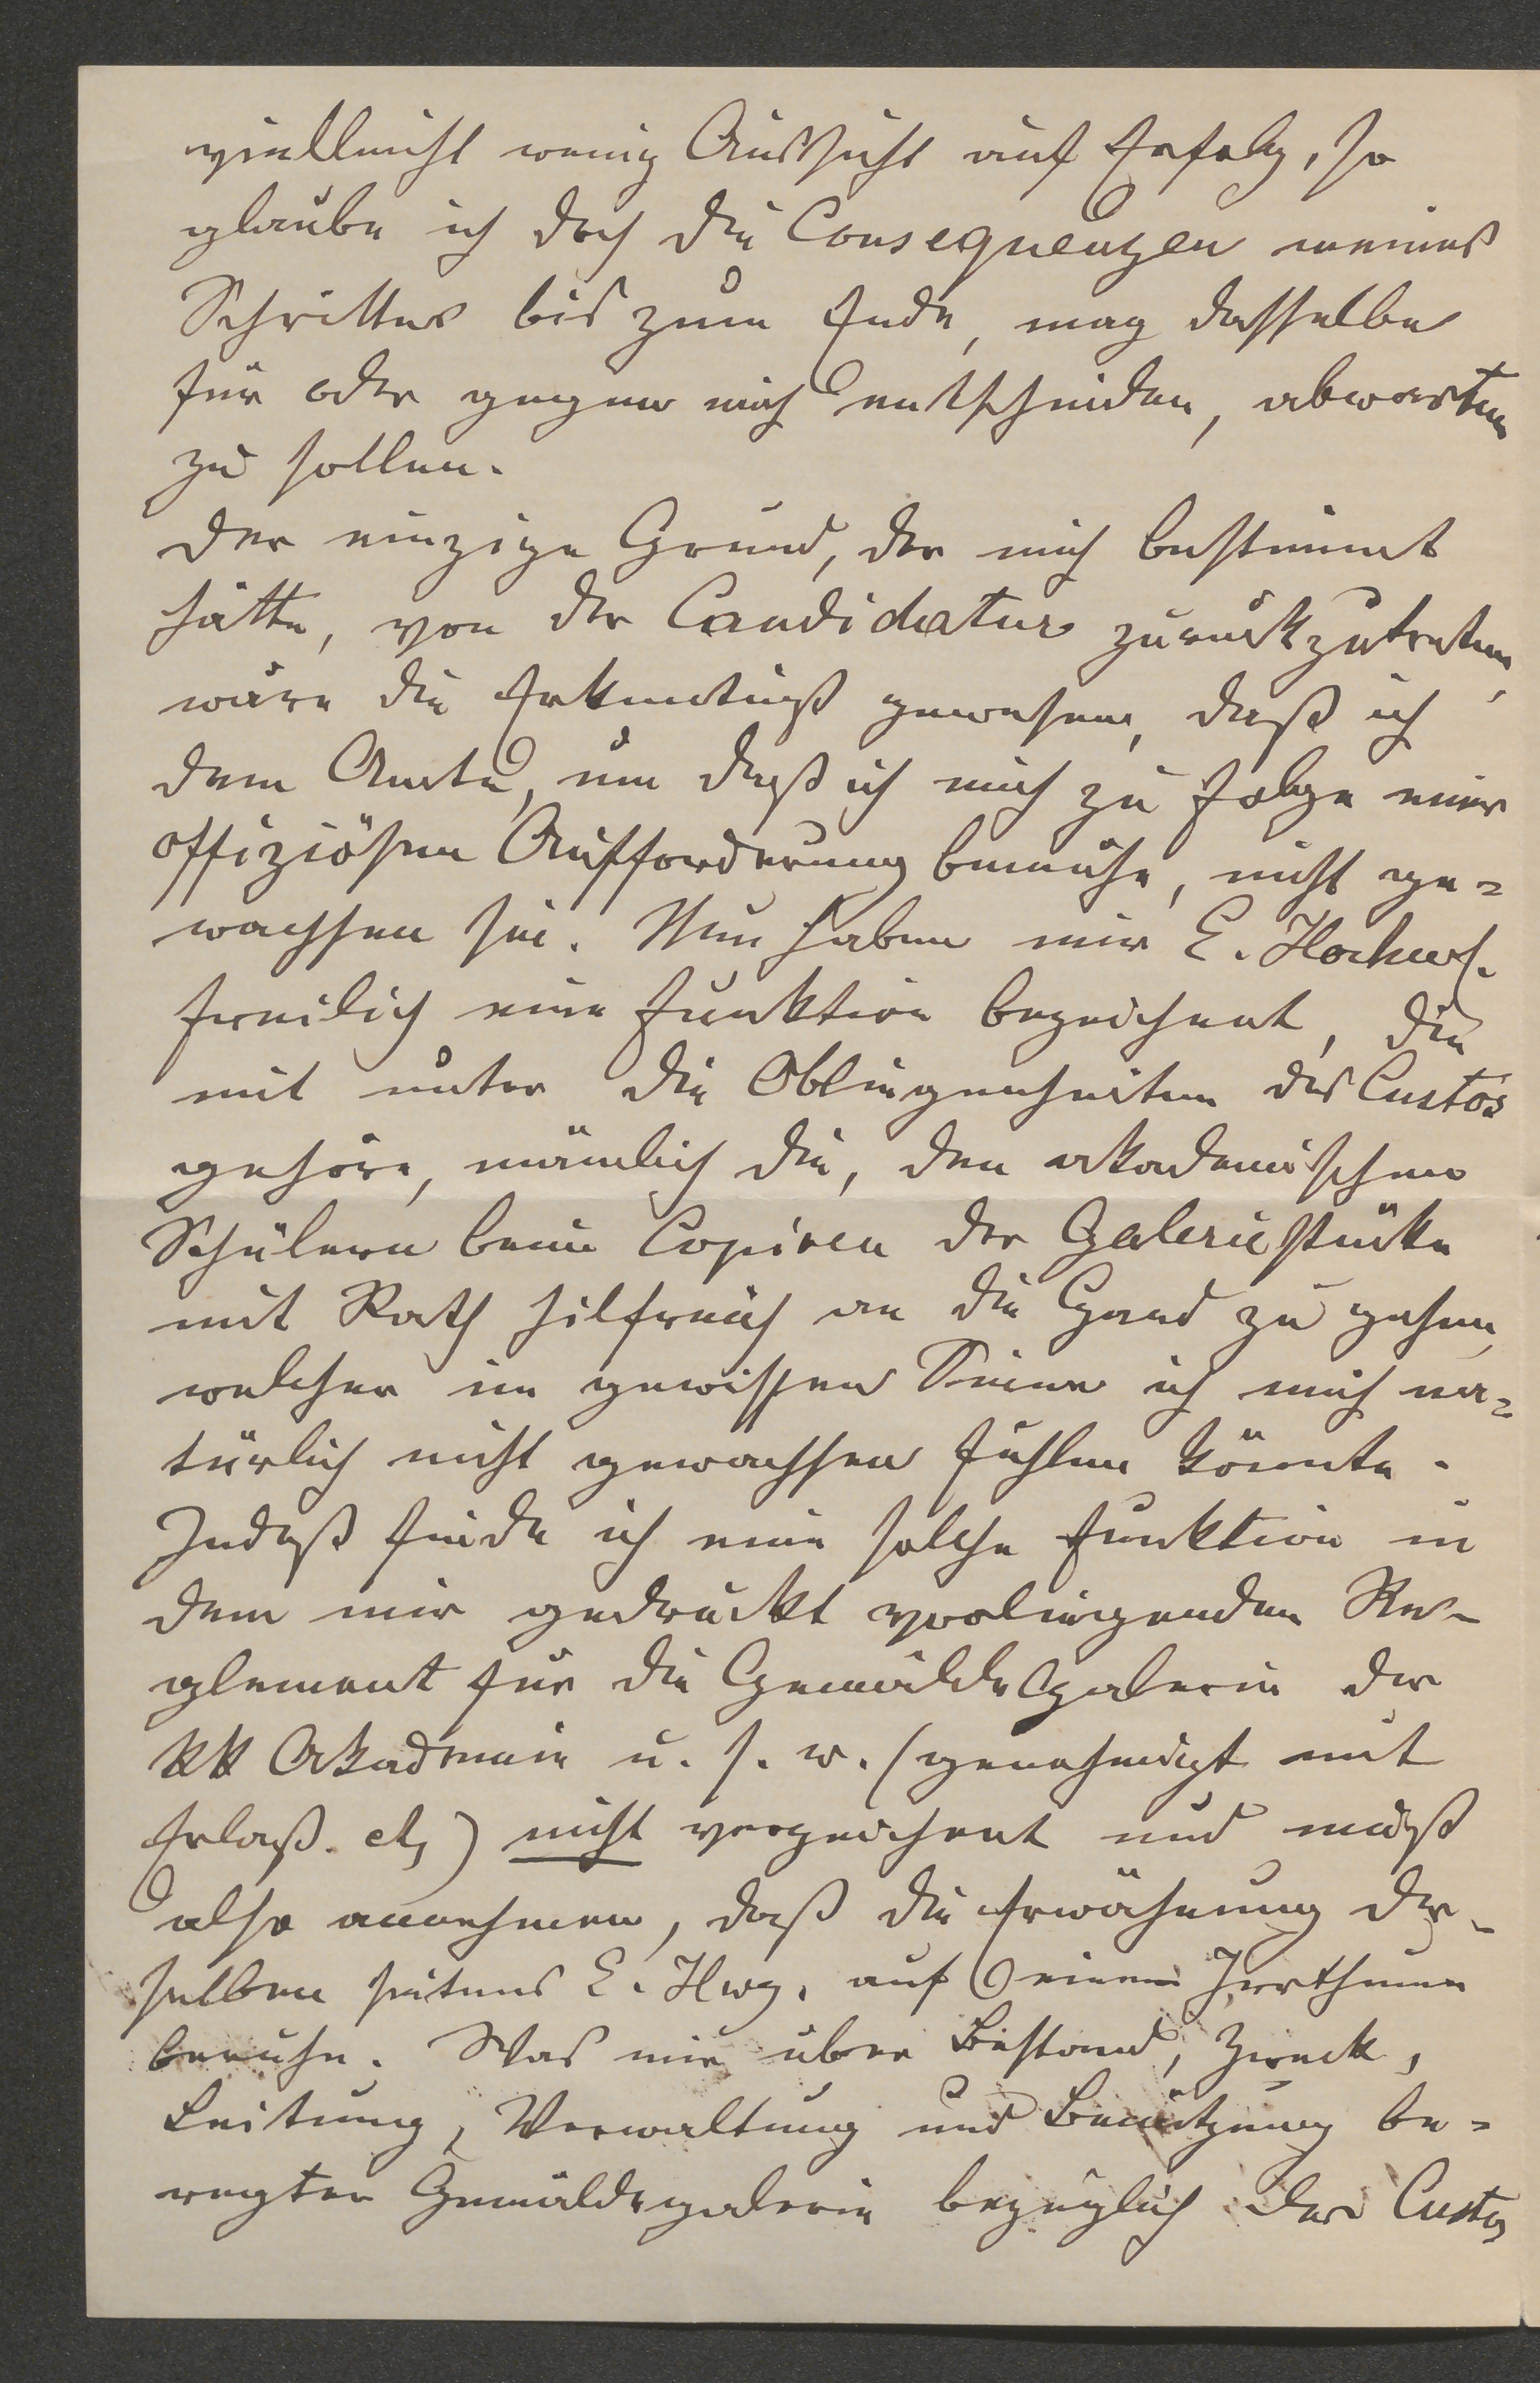 vielleicht wenig Aussicht auf Erfolg, so
glaube ich doch die Consequenzen meines
Schrittes bis zum Ende, mag dasselbe
für oder gegen mich entscheiden, abwarten
zu sollen.
Der einzige Grund, der mich bestimmt
hätte, von der Candidatur zurückzutreten,
wäre die Erkenntniß gewesen, daß ich
dem Amte, um daß ich mich zu Folge einer
offiziösen Aufforderung bemühe, nicht ge=
wachsen sei. Nun haben mir E. Hochw.
freilich eine Funktion bezeichnet, die
mit unter die Obliegenheiten des Custos
gehöre, nämlich die, den akademischen
Schülern beim Copiren der Galeriestücke
mit Rath hilfreich an die Hand zu gehen,
welcher im gewissen Sinne ich mich na=
türlich nicht gewachsen fühlen könnte.
Indeß finde ich eine solche Funktion in
dem mir gedruckt vorliegenden Re-
glement für die Gemälde Galerie der
kk Akademie u. s. w. (genehmigt mit
Erlaß. etz) nicht verzeichnet und muß
also annehmen, daß die Erwähnung der-
selben seitens E. Hwg. auf einem Irrthume
beruhe. Was mir über Bestand, Zweck,
Leitung, Verwaltung und Benützung be=
regter Gemäldegalerie bezüglich des Custos